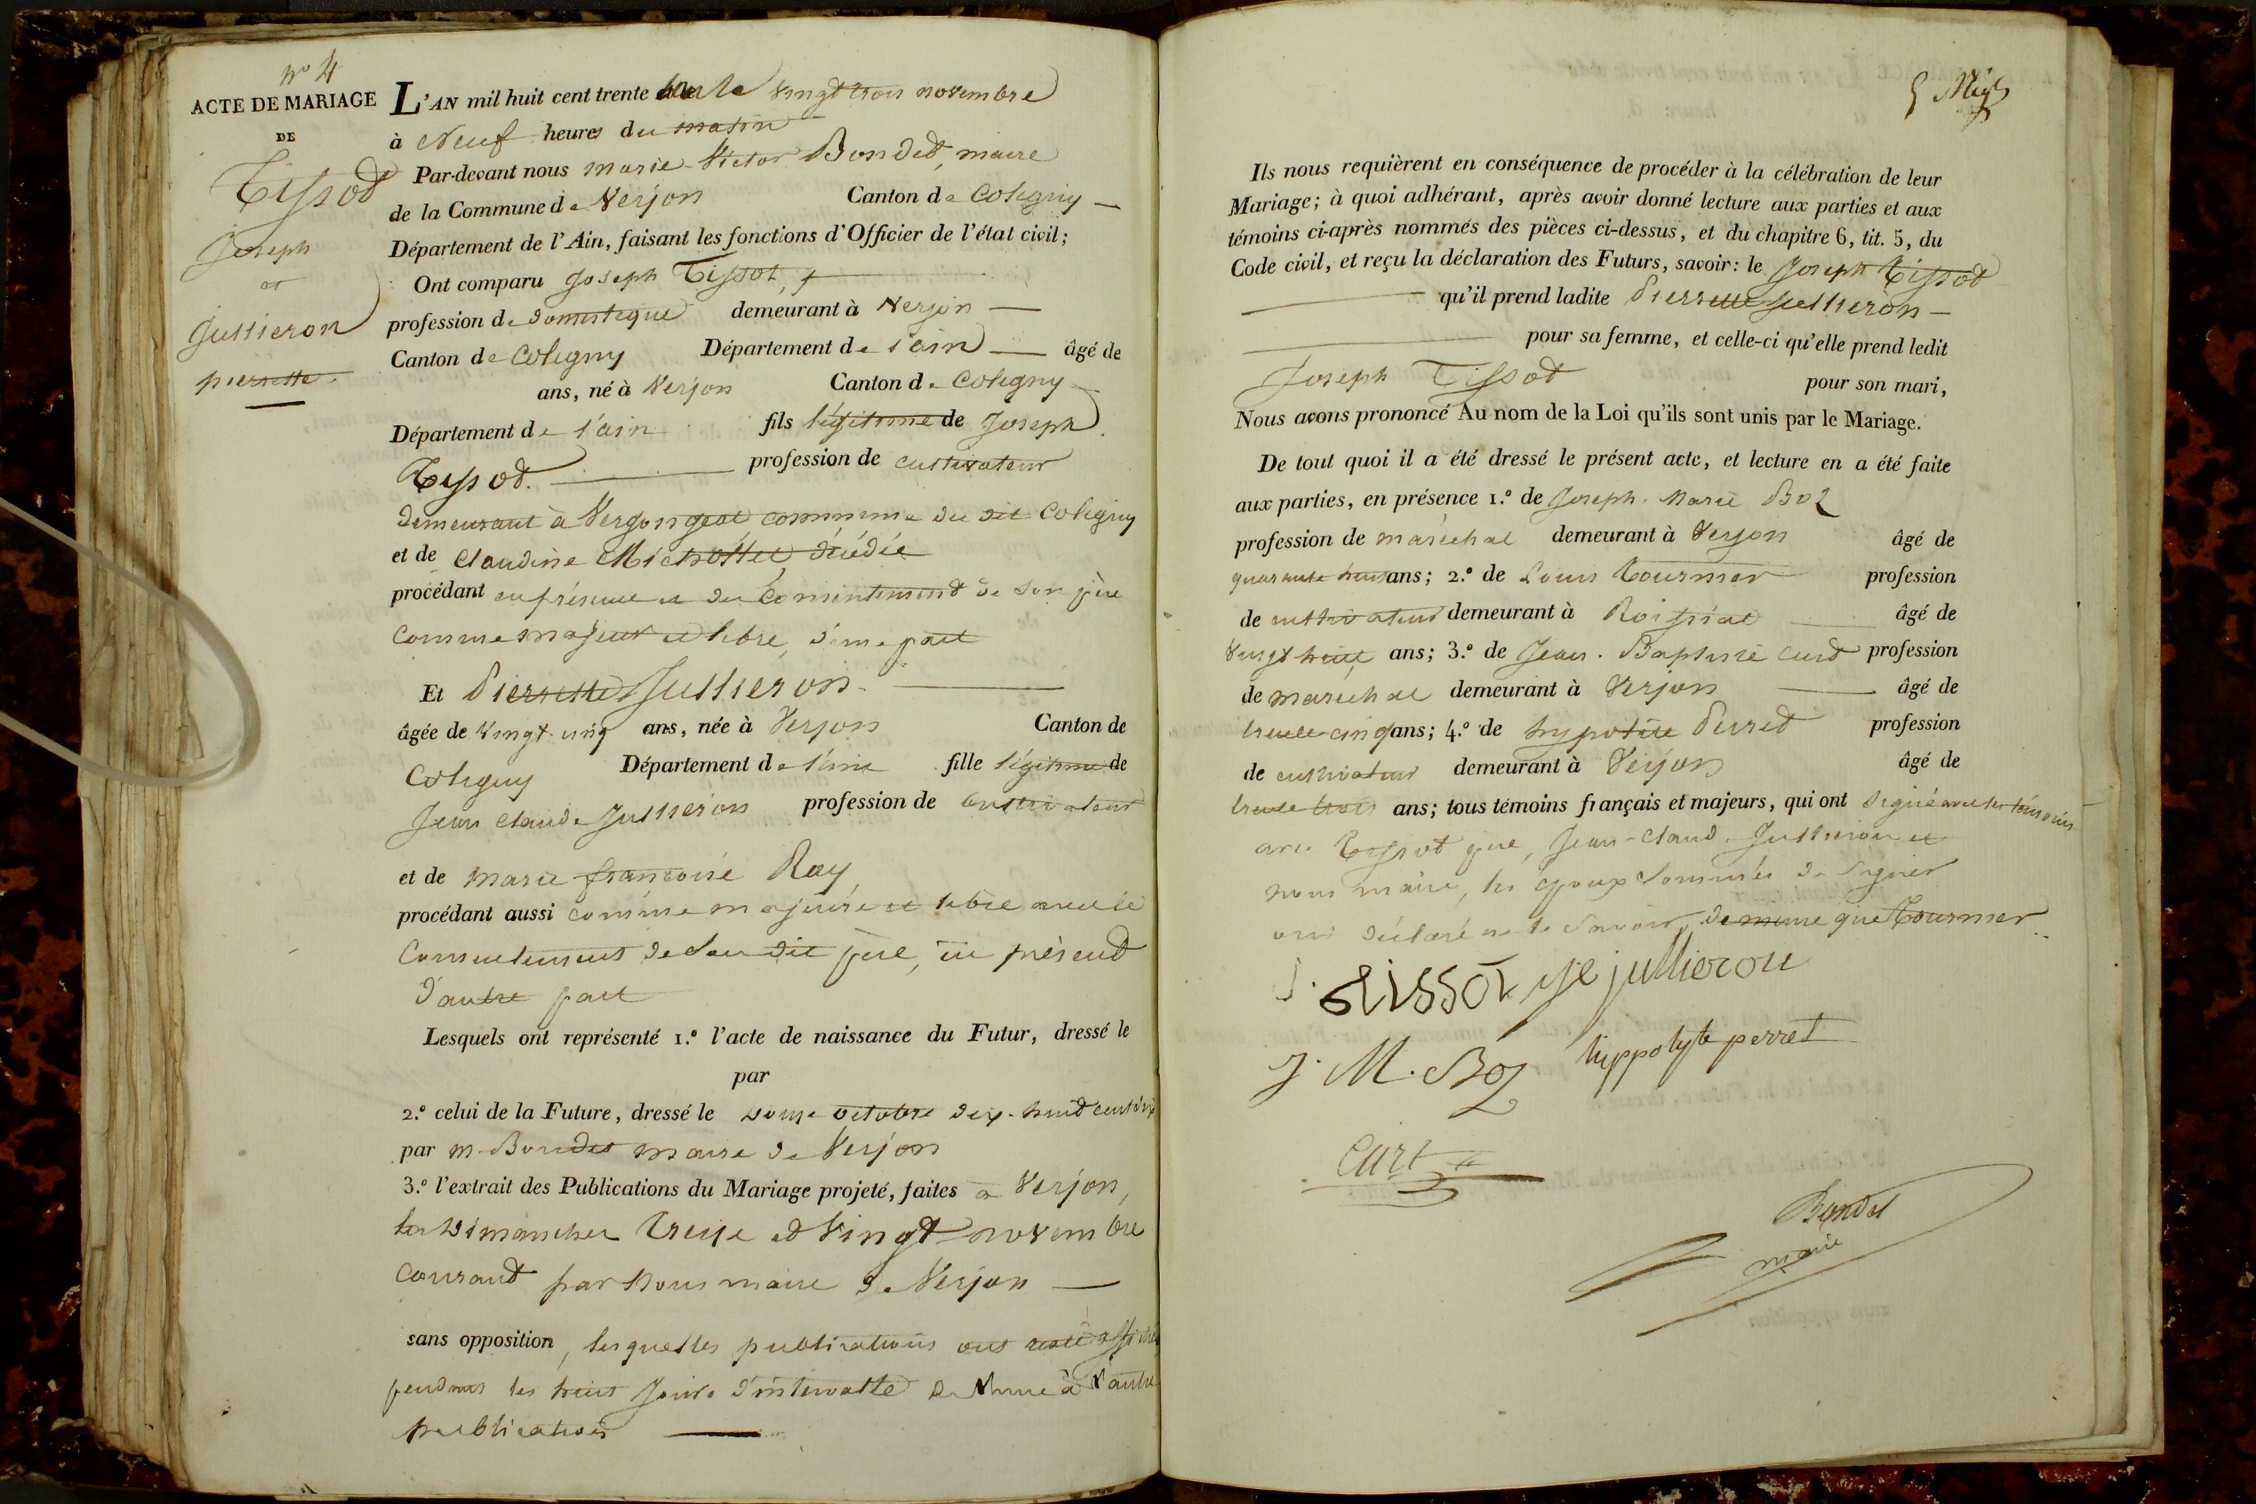 no 4
ACTE DE MARIAGE
DE
Tissot
Joseph
et
Jullieron
pierrette
L'AN mil huit cent trente le vingt trois novembre
à Neuf heures du matin
Par-devant nous marie Victor Bondet, maire
de la Commune de Verjon Canton de Coligny
Département de l'Ain, faisant les fonctions d'Officier de l'état civil;
Ont comparu Joseph Tissot,
profession de domestique demeurant à Verjon
Canton de Coligny Département de l'ain âgé de
ans, né à Verjon Canton de Coligny
Département de l'ain fils légitime de Joseph
Tissot. profession de cultivateur
demeurant à Verjon commune du dit Coligny
et de Claudine décédée
procédant en présence et du Consentement de son père
comme majeur et libre, d'une part
Et Pierrette Jullieron
âgée de vingt-un ans, née à Verjon Canton de
Coligny Département de l'ain fille légitime de
Jean Claude Jullieron profession de Cultivateur
et de marie françoise Ray,
procédant aussi comme majeure et libre avec le
Consentement de son dit père, ici présent
d'autre part
Lesquels ont représenté 1.º l'acte de naissance du Futur, dressé le
par
2.º celui de la Future, dressé le douze octobre dix-huit cent dix
par m. Bondet maire de Verjon
3.º l'extrait des Publications du Mariage projeté, faites à Verjon,
les dimanches treize et vingt novembre
courant par nous maire de Verjon
sans opposition, lesquelles publications ont resté affichées
pendant les huit jours d'intervalle de l'une à l'autre
publication
5 Mge
Ils nous requièrent en conséquence de procéder à la célébration de leur
Mariage; à quoi adhérant, après avoir donné lecture aux parties et aux
témoins ci-après nommés des pièces ci-dessus, et du chapitre 6, tit. 5, du
Code civil, et reçu la déclaration des Futurs, savoir: le Joseph Tissot
qu'il prend ladite Pierrette Jullieron
pour sa femme, et celle-ci qu'elle prend ledit
Joseph Tissot pour son mari,
Nous avons prononcé Au nom de la Loi qu'ils sont unis par le Mariage.
De tout quoi il a été dressé le présent acte, et lecture en a été faite
aux parties, en présence 1.º de Joseph-Marie Boz
profession de maréchal demeurant à Verjon âgé de
quarante huit ans; 2.º de Louis Tournier profession
de cultivateur demeurant à Roissiat âgé de
vingt huit ans; 3.º de Jean-Baptiste Curt profession
de maréchal demeurant à Verjon âgé de
trente-cinq ans; 4.º de hypolite Perret profession
de cultivateur demeurant à Verjon âgé de
trente trois ans; tous témoins français et majeurs, qui ont signé avec les témoins
avec Tissot père, Jean-Claude Jullieron et
nous maire, les époux sommés de signer
ont déclaré ne le savoir, de meme que Tournier
J. tissot je jullierou
J. M. Boz hyppolyte perret
Curt
Bondet
maire